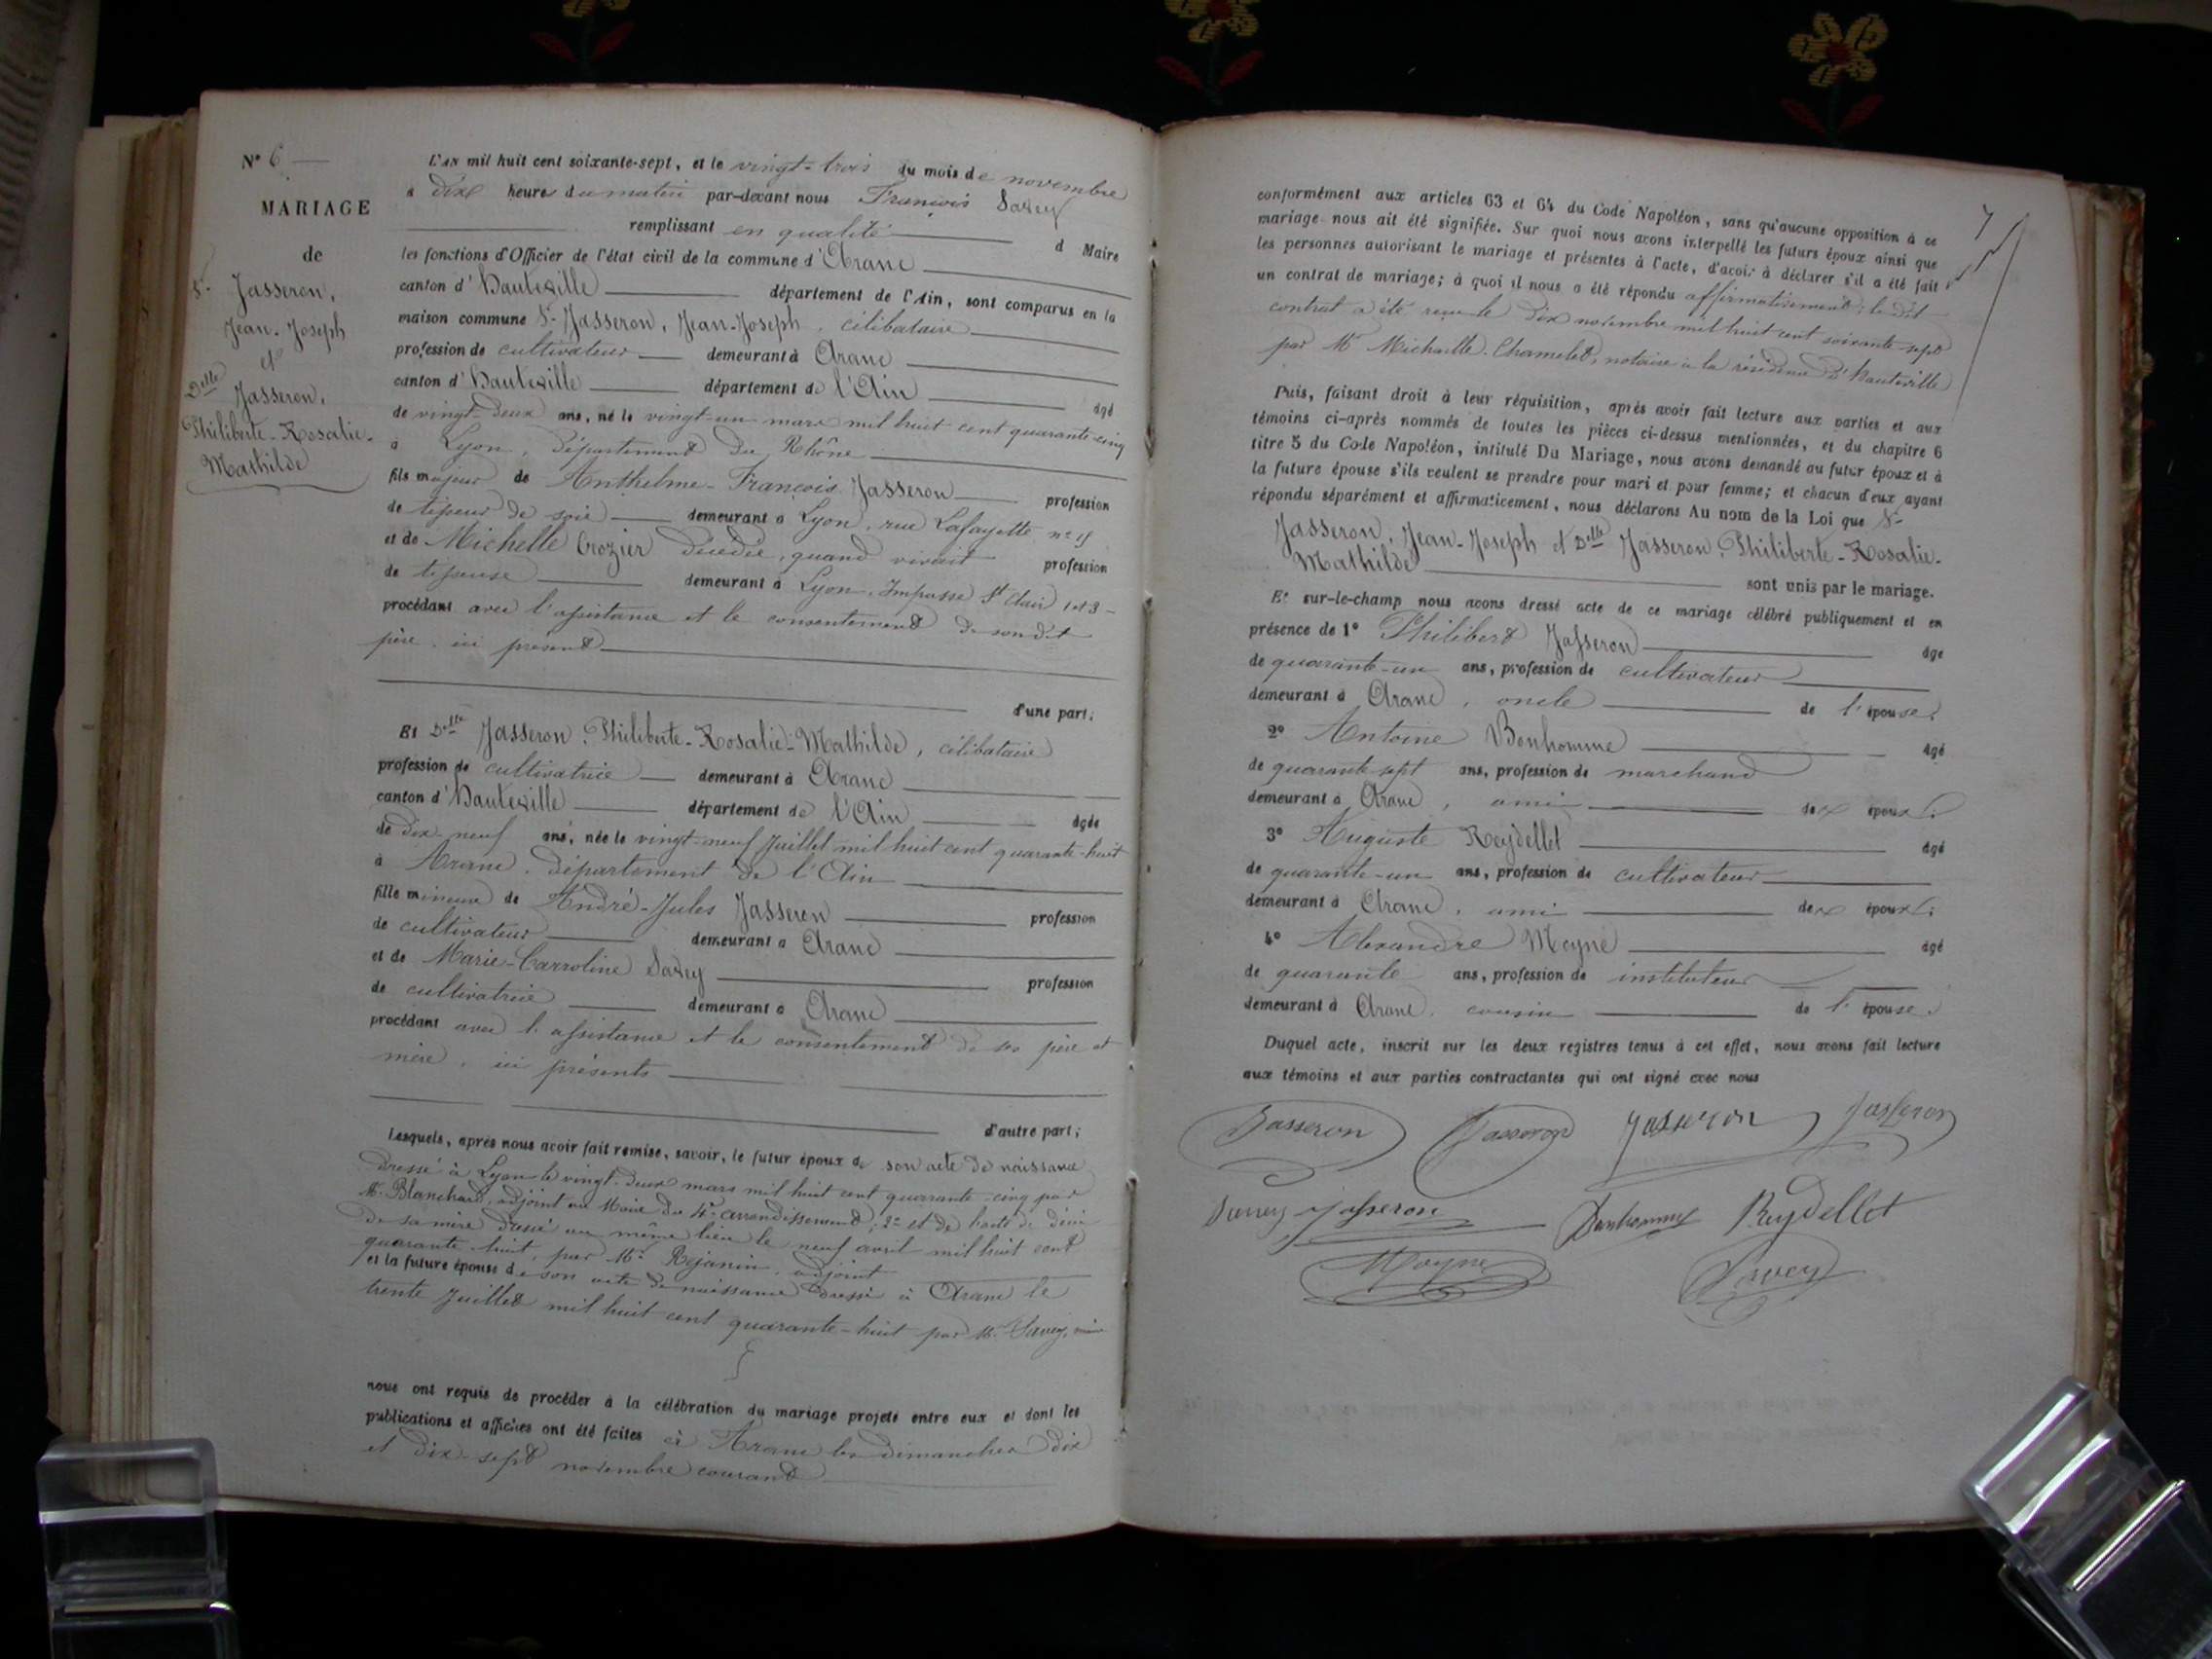 N° 6
MARIAGE
de
Sr Jasseron,
Jean-Joseph
et
Delle Jasseron,
Philiberte-Rosalie-
Mathilde
L'AN mil huit cent soixante-sept, et le vingt-trois du mois de novembre
à dix heures du matin par-devant nous François Savey
remplissant en qualité d Maire
les fonctions d'Officier de l'état civil de la commune d'Aranc
canton d'Hauteville département de l'Ain, sont comparus en la
maison commune Sr Jasseron, Jean-Joseph, célibataire
profession de cultivateur demeurant à Aranc
canton d'Hauteville département de l'Ain âgé
de vingt-deux ans, né le vingt-un mars mil huit cent quarante-cinq
à Lyon, département du Rhône
fils majeur de Anthelme-François Jasseron profession
de tisseur de soie demeurant à Lyon, rue Lafayette n°
et de Michelle Crozier décédée, quand vivait profession
de tisseuse demeurant à Lyon, Impasse St Clair
procédant avec l'assistance et le consentement de son dit
père, ici présent
d'une part;
Et Delle Jasseron, Philiberte-Rosalie-Mathilde, célibataire
profession de cultivatrice demeurant à Aranc
canton d'Hauteville département de l'Ain âgée
de dix-neuf ans, née le vingt-neuf Juillet mil huit cent quarante-huit
à Aranc, département de l'Ain
fille mineure de André-Jules Jasseron profession
de cultivateur demeurant à Aranc
et de Marie-Carroline Savey profession
de cultivatrice demeurant à Aranc
procédant avec l'assistance et le consentement de ses père et
mère, ici présents
d'autre part;
Lesquels, après nous avoir fait remise, savoir, le futur époux de son acte de naissance
dressé à Lyon le vingt-deux mars mil huit cent quarante-cinq par
Mr Blanchard, adjoint au Maire du 4e arrondissement; 2° et de l'acte de décès
de sa mère dressé au même lieu le neuf avril mil huit cent
quarante-huit, par Mr Rejanin, adjoint
et la future épouse de son acte de naissance dressé à Aranc le
trente Juillet mil huit cent quarante-huit par Mr Savey, maire
nous ont requis de procéder à la célébration du mariage projeté entre eux et dont les
publications et affiches ont été faites à Aranc les dimanches dix
et dix-sept novembre courant
7
conformément aux articles 63 et 64 du Code Napoléon, sans qu'aucune opposition à ce
mariage nous ait été signifiée. Sur quoi nous avons interpellé les futurs époux ainsi que
les personnes autorisant le mariage et présentes à l'acte, d'avoir à déclarer s'il a été fait
un contrat de mariage; à quoi il nous a été répondu affirmativement; le dit
contrat a été reçu le dix novembre mil huit cent soixante-sept
par Mr Michaille-Chamelet, notaire à la résidence d'Hauteville
Puis, faisant droit à leur réquisition, après avoir fait lecture aux parties et aux
témoins ci-après nommés de toutes les pièces ci-dessus mentionnées, et du chapitre 6
titre 5 du Code Napoléon, intitulé Du Mariage, nous avons demandé au futur époux et à
la future épouse s'ils veulent se prendre pour mari et pour femme; et chacun d'eux ayant
répondu séparément et affirmativement, nous déclarons Au nom de la Loi que Sr
Jasseron, Jean-Joseph et Delle Jasseron, Philiberte-Rosalie-
Mathilde sont unis par le mariage.
Et sur-le-champ nous avons dressé acte de ce mariage célébré publiquement et en
présence de 1° Philibert Jasseron âge
de quarante-un ans, profession de cultivateur
demeurant à Aranc, oncle de l'épouse;
2° Antoine Bonhomme âgé
de quarante-sept ans, profession de marchand
demeurant à Aranc, ami des époux;
3° Auguste Reydellet âgé
de quarante-un ans, profession de cultivateur
demeurant à Aranc, ami des époux;
4° Alexandre Moyne âgé
de quarante ans, profession de instituteur
demeurant à Aranc, cousin de l'épouse.
Duquel acte, inscrit sur les deux registres tenus à cet effet, nous avons fait lecture
aux témoins et aux parties contractantes qui ont signé avec nous
Jasseron Jasseron Jasseron Jasseron
Savey Jasseron Bonhomme Reydellet
Moyne Savey